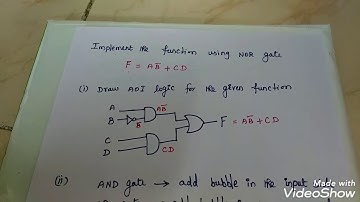 Implement the function using NOR gate
F = AB̅ + CD
(i) Draw AOI logic for the given function
A
AB̅
B
B̅
F = AB̅ + CD
C
D
CD
(ii) AND gate → add bubble in the input
Made with
VideoShow